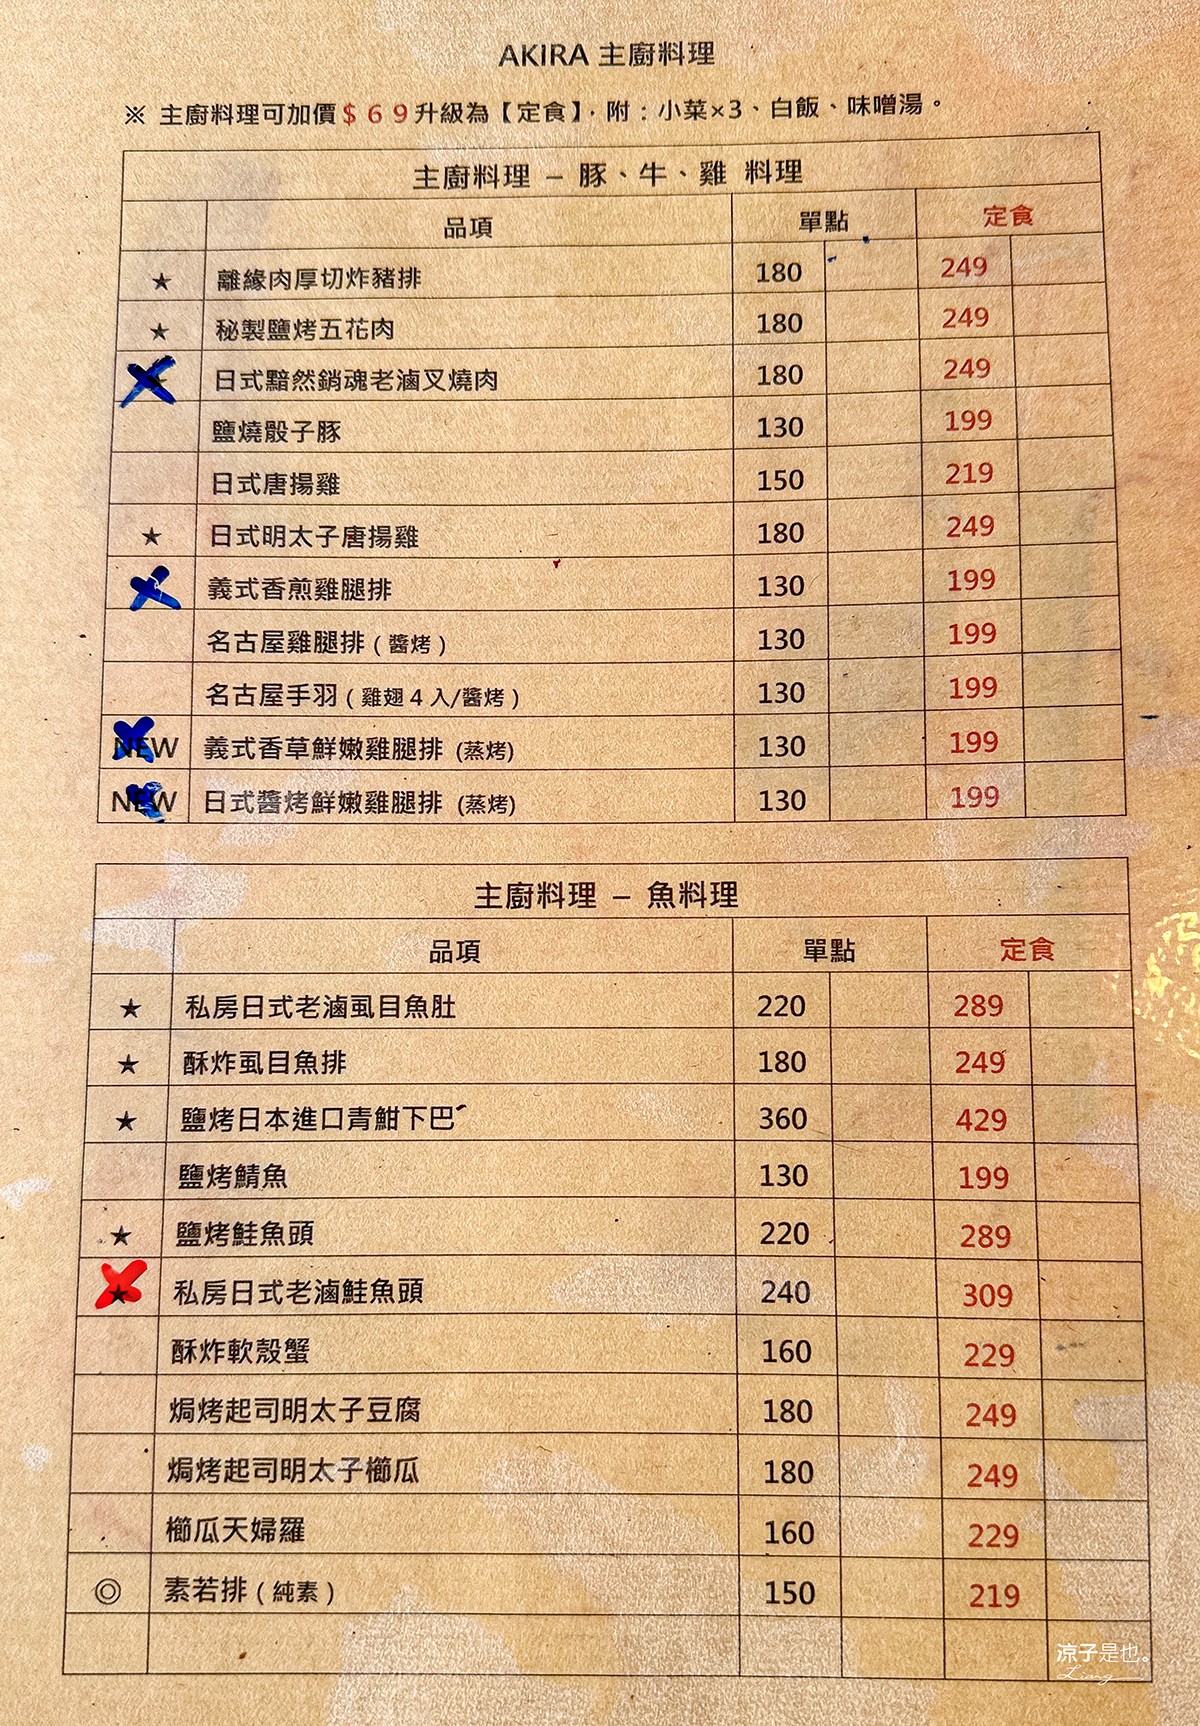 AKIRA 主廚料理
※ 主廚料理可加價$69升級為【定食】,附:小菜×3、白飯、味噌湯。
主廚料理 – 豚、牛、雞 料理
品項 單點 定食
★ 離緣肉厚切炸豬排 180 249
★ 秘製鹽烤五花肉 180 249
日式黯然銷魂老滷叉燒肉 180 249
鹽燒骰子豚 130 199
日式唐揚雞 150 219
★ 日式明太子唐揚雞 180 249
義式香煎雞腿排 130 199
名古屋雞腿排(醬烤) 130 199
名古屋手羽(雞翅4入/醬烤) 130 199
NEW 義式香草鮮嫩雞腿排 (蒸烤) 130 199
NEW 日式醬烤鮮嫩雞腿排 (蒸烤) 130 199
主廚料理 – 魚料理
品項 單點 定食
★ 私房日式老滷虱目魚肚 220 289
★ 酥炸虱目魚排 180 249
★ 鹽烤日本進口青魽下巴 360 429
鹽烤鯖魚 130 199
★ 鹽烤鮭魚頭 220 289
★ 私房日式老滷鮭魚頭 240 309
酥炸軟殼蟹 160 229
焗烤起司明太子豆腐 180 249
焗烤起司明太子櫛瓜 180 249
櫛瓜天婦羅 160 229
◎ 素若排(純素) 150 219
涼子是也。
Liang